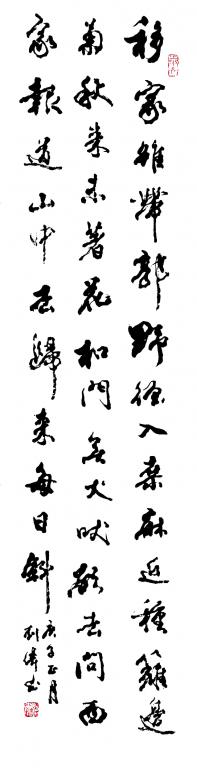 移家雖帶郭野徑入桑麻近種籬邊
菊秋来未著花扣門無犬吠欲去問西
家報道山中去歸来每日斜
庚子正月
刘偉书